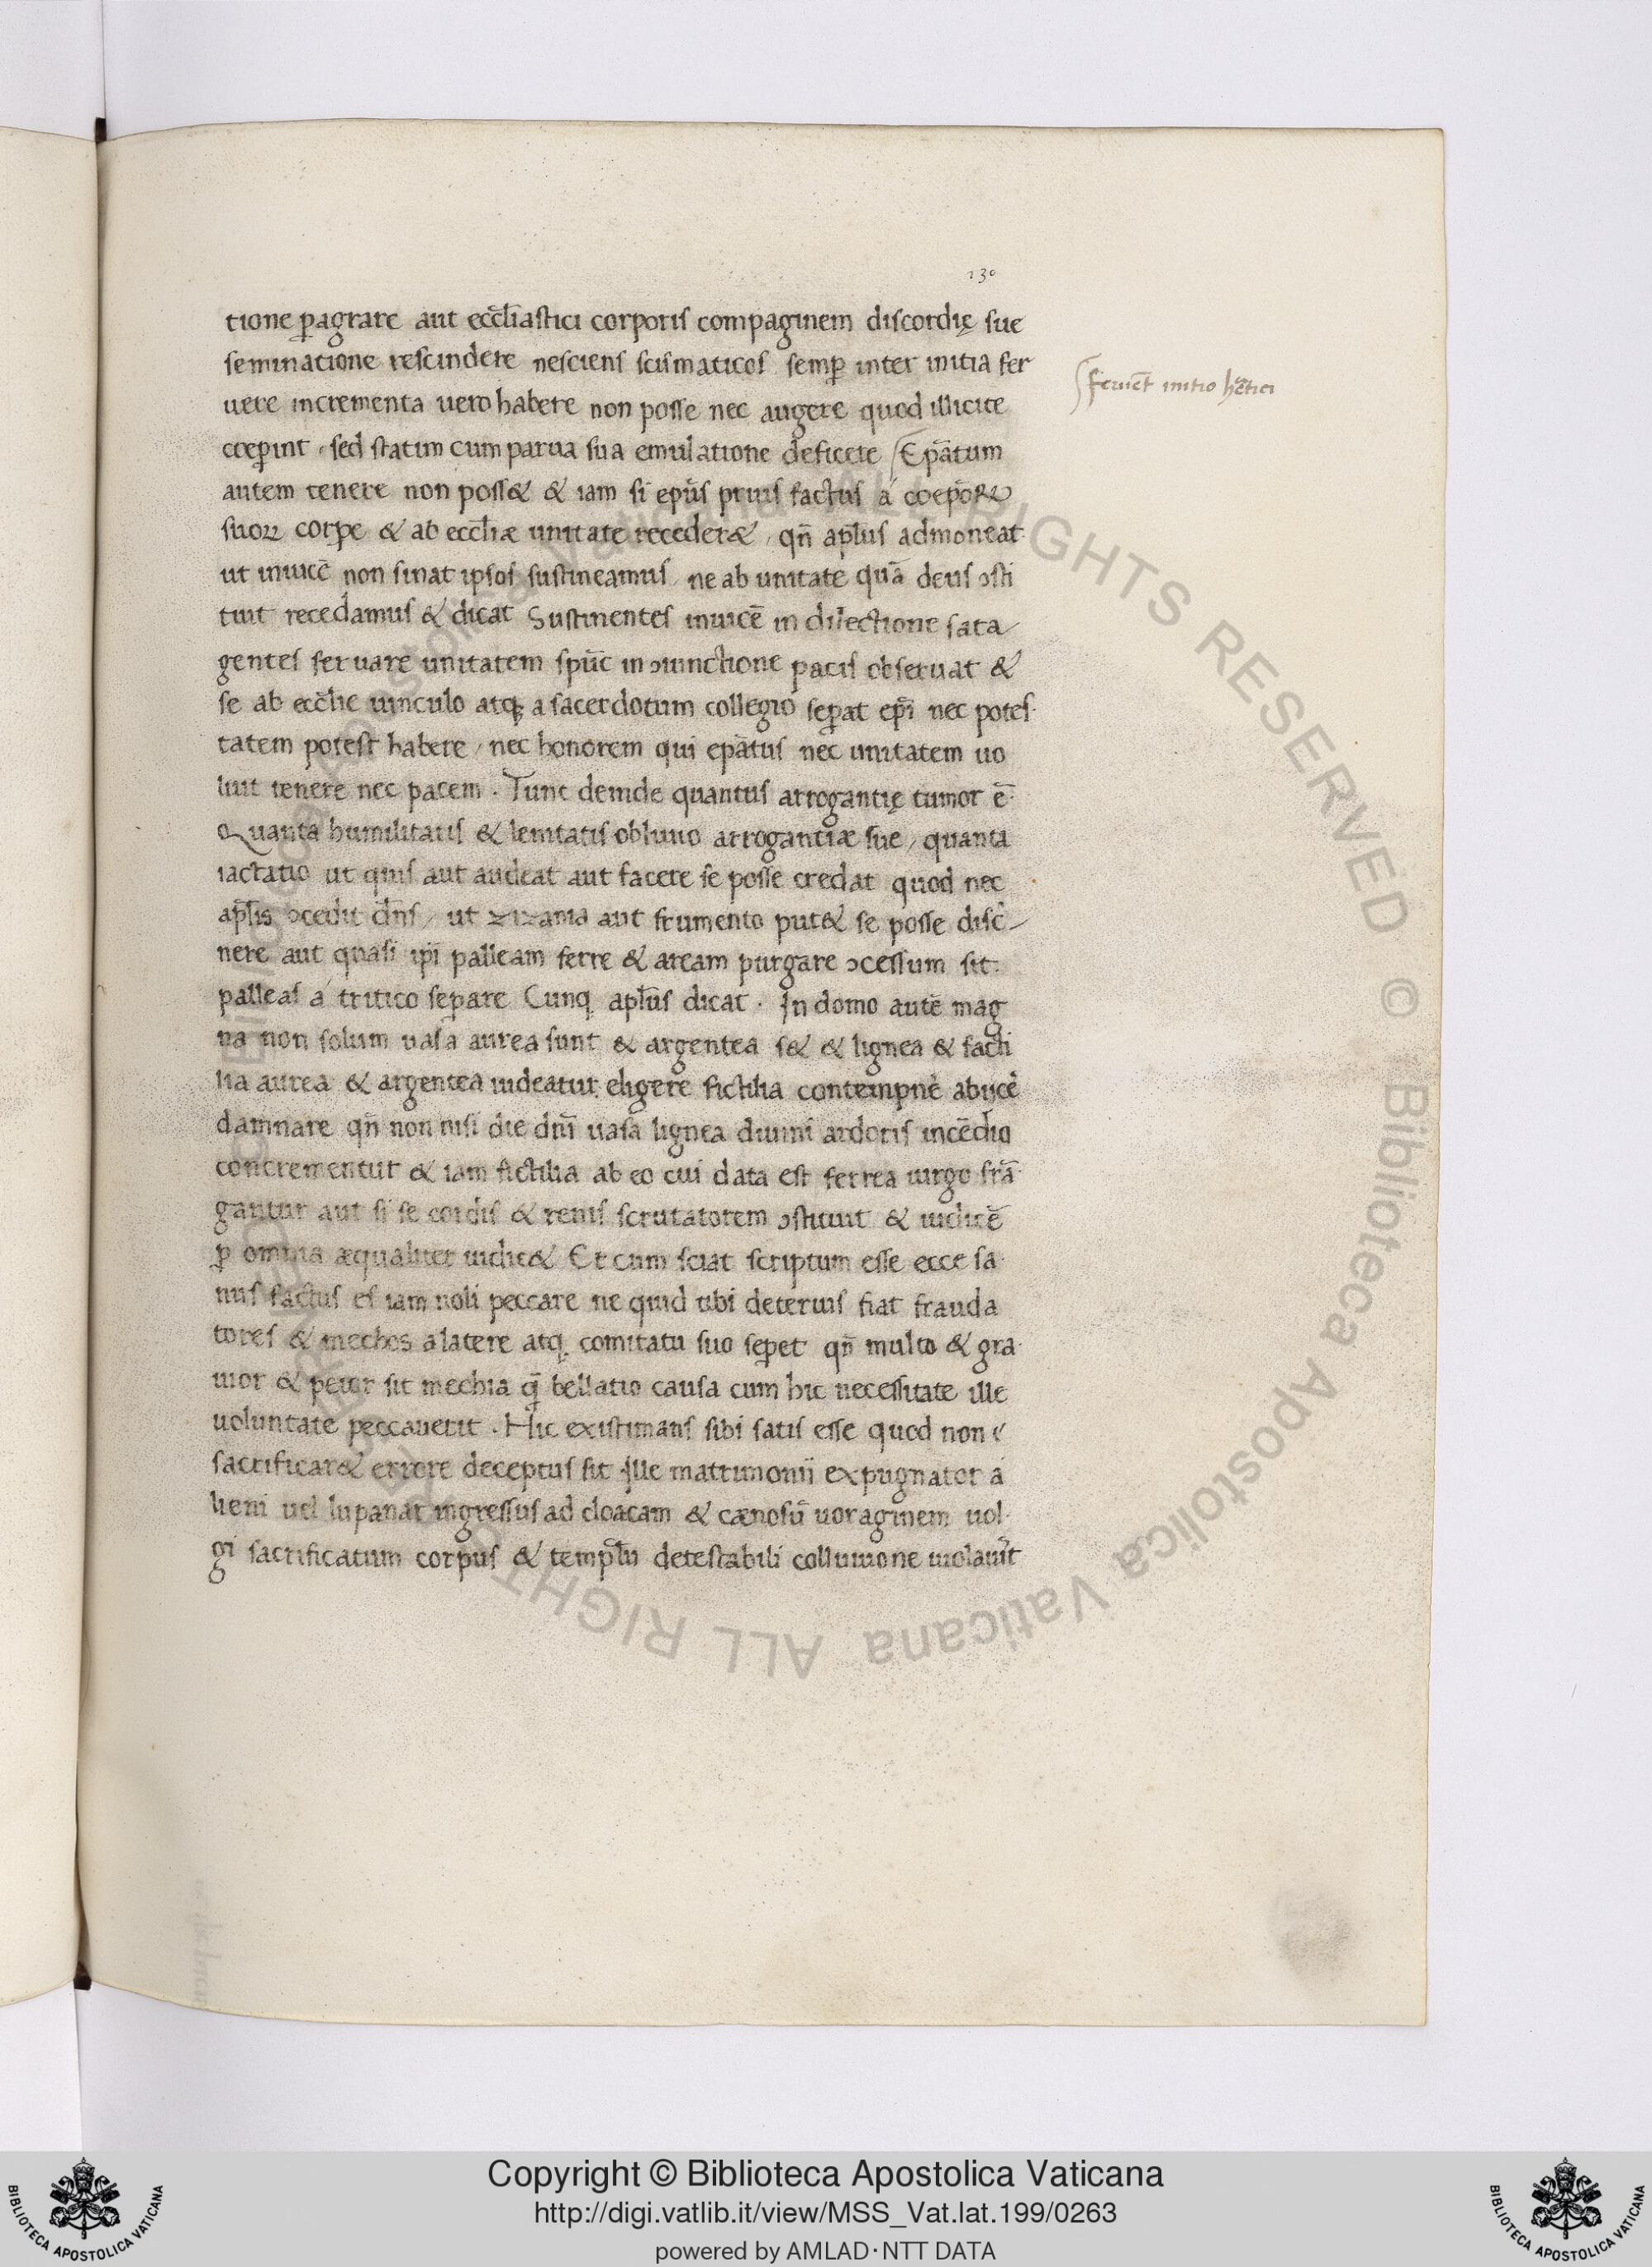 130
tione ꝑagrare aut eccl̄iastici corporis compaginem discordię sue
seminatione rescindere nesciens scismaticos semꝑ inter initia fer
uere incrementa uero habere non posse nec augere quod illicite
cœꝑint, sed statim cum parua sua emulatione deficere Ep̄atum
autem tenere non poss& & iam si ep̄us prius factus á coep̄oꝝ
suoꝝ corꝑe & ab eccl̄iæ unitate receder&, qn̄ apl̄us admoneat
ut inuicē non sinat ipsos sustineamus, ne ab unitate quā deus ꝯsti
tuit recedamus & dicat Sustinentes inuicē in dilectione sata
gentes seruare unitatem sp̄uc in ꝯiunctione pacis obseruat &
se ab eccl̄ie uinculo atqꝫ a sacerdotum collegio seꝑat ep̄i nec potes
tatem potest habere, nec honorem qui ep̄atus nec unitatem uo
luit tenere nec pacem. Tunc deinde quantus arrogantię tumor ē
Quanta humilitatis & lenitatis obliuio arrogantiæ sue, quanta
iactatio ut quis aut audeat aut facere se posse credat quod nec
apl̄is ꝯcedit dn̄s, ut zizania aut frumento put& se posse disc̄
nere aut quasi ip̄i palleam ferre & aream purgare ꝯcessum sit
palleas á tritico seꝑare Cunq apl̄us dicat. In domo autē mag
na non solum uasa aurea sunt & argentea s& & lignea & facti
lia aurea & argentea uideatur eligere fictilia contempnē abijcē
damnare qn̄ non nisi die dn̄i uasa lignea diuini ardoris incēdio
concrementur & iam fictilia ab eo cui data est ferrea uirgo frā
gantur aut si se cordis & renis scrutatorem ꝯstituit & iudicē
ꝑ omnia æqualiter iudic& Et cum sciat scriptum esse ecce sa
nus factus es iam noli peccare ne quid tibi deterius fiat frauda
tores & mechos a latere atq comitatu suo seꝑet qn̄ multo & gra
uior & peior sit mechia q̄ bellatio causa cum hic necessitate ille
uoluntate peccauerit. Hic existimans sibi satis esse quod non
sacrificar& errore deceptus sit Ille matrimonii expugnator á
lieni uel lupanar ingressus ad cloacam & cænosū uoraginem uol
gi sacrificatum corpus & templ̄u detestabili colluuione uiolauit
feruēt initio hētici
Copyright © Biblioteca Apostolica Vaticana
http://digi.vatlib.it/view/MSS_Vat.lat.199/0263
powered by AMLAD·NTT DATA
BIBLIOTECA APOSTOLICA VATICANA
BIBLIOTECA APOSTOLICA VATICANA
ALL RIGHTS RESERVED © Biblioteca Apostolica Vaticana ALL RIGHT